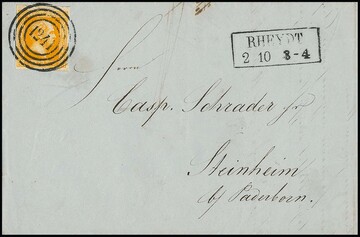 124
RHEYDT
2 10 3-4
Herrn
Casp. Schrader jr
Steinheim
b/ Paderborn.